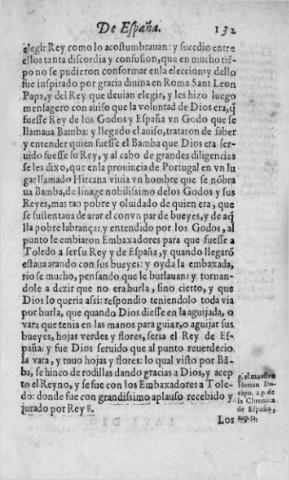 De España. 132
elegir Rey como lo acostumbrauan: y sucedio entre
ellos tanta discordia y confusion, que en mucho tiẽ-
po no se pudieron conformar en la eleccion: y dello
fue inspirado por gracia diuina en Roma Sant Leon
Papa, y del Rey que deuian elegir, y les hizo luego
mensagero con auiso que la voluntad de Dios era, q̃
fuesse Rey de los Godos y España vn Godo que se
llamaua Bamba: y llegado el auiso, trataron de saber
y entender quien fuesse el Bamba que Dios era ser-
uido fuesse su Rey, y al cabo de grandes diligencias
se les dixo, que en la prouincia de Portugal en vn lu-
gar llamado Hircana viuia vn hombre que se nõbra
ua Bamba, de linage nobilissimo de los Godos y sus
Reyes, mas tan pobre y oluidado de quien era, que
se sustentaua de arar el con vn par de bueyes, y de aq̃
lla pobre labrança: y entendido por los Godos, al
punto le embiaron Embaxadores para que fuesse a
Toledo a ser su Rey y de España, y quando llegarõ
estaua arando con sus bueyes: y oyda la embaxada,
rio se mucho, pensando que le burlauan: y tornan-
dole a dezir que no era burla, sino cierto, y que
Dios lo queria assi: respondio teniendolo toda via
por burla, que quando Dios diesse en la aguijada, o
vara que tenia en las manos para guiar, o aguijar sus
bueyes, hojas verdes y flores, seria el Rey de Es-
paña: y fue Dios seruido que al punto reuerdecio
la vara, y tuuo hojas y flores: lo qual visto por Bã-
ba, se hinco de rodillas dando gracias a Dios, y acep
to el Reyno, y se fue con los Embaxadores a Tole-
do: donde fue con grandissimo aplauso recebido y
jurado por Rey g.
g. el maestro
Florian Do-
campo. 2. p. de
la Chronica
de España,
cap. 51.
Los